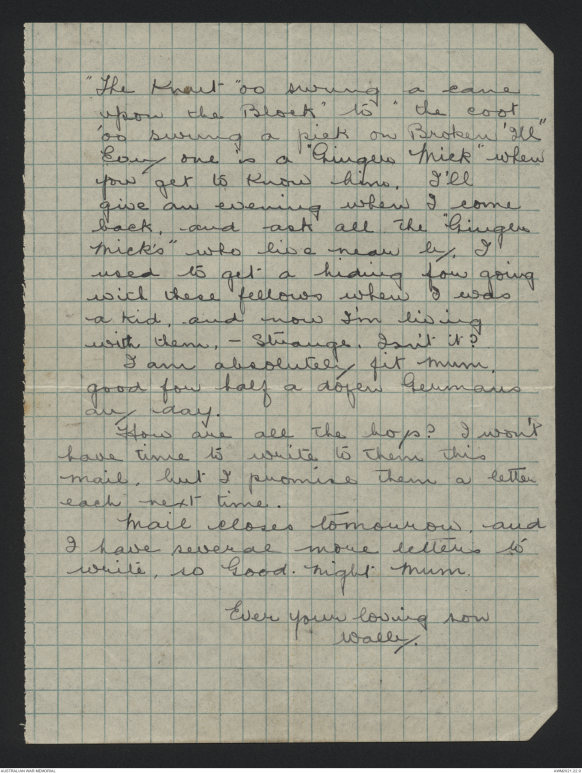 "The Knut 'oo swung a cane
upon the Block" to "the coot
'oo swung a pick on Broken 'Ill"
Every one is a "Ginger Mick" when
you get to know him. I'll
give an evening when I come
back, and ask all the "Ginger
Mick's" who live near by. I
used to get a hiding for going
with these fellows when I was
a kid, and now I'm living
with them, - Strange. Isn't it?
I am absolutely fit Mum,
good for half a dozen Germans
any day.
How are all the boys? I won't
have time to write to them this
mail, but I promise them a letter
each next time.
Mail closes tomorrow, and
I have several more letters to
write, so Good-night Mum.
Ever your loving son
Wally.
AUSTRALIAN WAR MEMORIAL